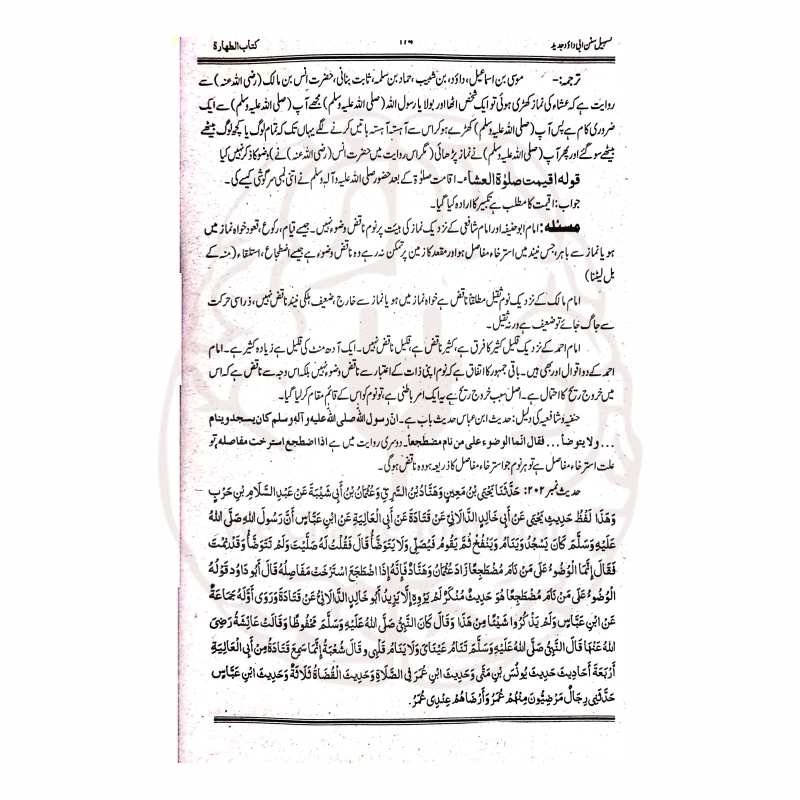 تسہیل سنن ابی داؤد جدید
۱۱۹
کتاب الطهارة
ترجمہ:- موسٰی بن اسماعیل، داؤد، بن شہیب، حماد بن سلمہ، ثابت بنانی، حضرت انس بن مالک (رضی اللہ عنہ) سے
روایت ہے کہ عشاء کی نماز کھڑی ہوئی تو ایک شخص اٹھا اور بولا یا رسول اللہ (صلی اللہ علیہ وسلم) مجھے آپ (صلی اللہ علیہ وسلم) سے ایک
ضروری کام ہے پس آپ (صلی اللہ علیہ وسلم) کھڑے ہو کر اس سے آہستہ آہستہ باتیں کرنے لگے یہاں تک کہ تمام لوگ یا کچھ لوگ بیٹھے
بیٹھے سو گئے اور پھر آپ (صلی اللہ علیہ وسلم) نے نماز پڑھائی (مگر اس روایت میں حضرت انس (رضی اللہ عنہ) نے) وضو کا ذکر نہیں کیا
قوله اقيمت صلوٰة العشاء۔ اقامت صلوٰۃ کے بعد حضور صلی اللہ علیہ وآلہ وسلم نے اتنی لمبی سرگوشی کیسے کی۔
جواب: اقیمت کا مطلب ہے تکبیر کا ارادہ کیا گیا۔
مسئلہ: امام ابو حنیفہ اور امام شافعی کے نزدیک نماز کی ہیئت پر نوم ناقض وضوء نہیں۔ جیسے قیام، رکوع، قعود خواہ نماز میں
ہو یا نماز سے باہر، جس نیند میں استرخاء مفاصل ہو اور مقعد کا زمین پر تمکن نہ رہے وہ ناقض وضوء ہے جیسے اضطجاع، استلقاء (منہ کے
بل لیٹنا)
امام مالک کے نزدیک نوم ثقیل مطلقاً ناقض ہے خواہ نماز میں ہو یا نماز سے خارج، ضعیف ہلکی نیند ناقض نہیں، ذرا سی حرکت
سے جاگ جائے تو ضعیف ہے ورنہ ثقیل۔
امام احمد کے نزدیک قلیل کثیر کا فرق ہے، کثیر ناقض ہے، قلیل ناقض نہیں۔ ایک آدھ منٹ کی قلیل ہے زیادہ کثیر ہے۔ امام
احمد کے دو اقوال اور بھی ہیں۔ باقی جمہور کا اتفاق ہے کہ نوم اپنی ذات کے اعتبار سے ناقض وضوء نہیں بلکہ اس وجہ سے ناقض ہے کہ اس
میں خروج ریح کا احتمال ہے۔ اصل سبب خروج ریح ہے یہ ایک امر باطنی ہے، تو نوم کو اس کے قائم مقام کر لیا گیا۔
حنفیہ و شافعیہ کی دلیل: حدیث ابن عباس حدیث باب ہے۔ انّ رسول الله صلى الله عليه و آله وسلم كان يسجد و ينام
... ولا يتوضأ... فقال انّما الوضوء على من نام مضطجعاً۔ دوسری روایت میں ہے اذا اضطجع استرخت مفاصله، تو
علت استرخاء مفاصل ہے تو ہر نوم جو استرخاء مفاصل کا ذریعہ ہو وہ ناقض ہوگی۔
حدیث نمبر ۲۰۲: حَدَّثَنَا يَحْيَى بْنُ مَعِينٍ وَهَنَّادُ بْنُ السَّرِيِّ وَعُثْمَانُ بْنُ أَبِي شَيْبَةَ عَنْ عَبْدِ السَّلَامِ بْنِ حَرْبٍ
وَهَذَا لَفْظُ حَدِيثِ يَحْيَى عَنْ أَبِي خَالِدٍ الدَّالَانِيِّ عَنْ قَتَادَةَ عَنْ أَبِي الْعَالِيَةِ عَنِ ابْنِ عَبَّاسٍ أَنَّ رَسُولَ اللهِ صَلَّى اللهُ
عَلَيْهِ وَسَلَّمَ كَانَ يَسْجُدُ وَيَنَامُ وَيَنْفُخُ ثُمَّ يَقُومُ فَيُصَلِّي وَلَا يَتَوَضَّأُ قَالَ فَقُلْتُ لَهُ صَلَّيْتَ وَلَمْ تَتَوَضَّأْ وَقَدْ نِمْتَ
فَقَالَ إِنَّمَا الْوُضُوءُ عَلَى مَنْ نَامَ مُضْطَجِعًا زَادَ عُثْمَانُ وَهَنَّادٌ فَإِنَّهُ إِذَا اضْطَجَعَ اسْتَرْخَتْ مَفَاصِلُهُ قَالَ أَبُو دَاوُد قَوْلُهُ
الْوُضُوءُ عَلَى مَنْ نَامَ مُضْطَجِعًا هُوَ حَدِيثٌ مُنْكَرٌ لَمْ يَرْوِهِ إِلَّا يَزِيدُ أَبُو خَالِدٍ الدَّالَانِيُّ عَنْ قَتَادَةَ وَرَوَى أَوَّلَهُ جَمَاعَةٌ
عَنِ ابْنِ عَبَّاسٍ وَلَمْ يَذْكُرُوا شَيْئًا مِنْ هَذَا وَقَالَ كَانَ النَّبِيُّ صَلَّى اللهُ عَلَيْهِ وَسَلَّمَ مَحْفُوظًا وَقَالَتْ عَائِشَةُ رَضِيَ
اللهُ عَنْهَا قَالَ النَّبِيُّ صَلَّى اللهُ عَلَيْهِ وَسَلَّمَ تَنَامُ عَيْنَايَ وَلَا يَنَامُ قَلْبِي و قَالَ شُعْبَةُ إِنَّمَا سَمِعَ قَتَادَةُ مِنْ أَبِي الْعَالِيَةِ
أَرْبَعَةَ أَحَادِيثَ حَدِيثَ يُونُسَ بْنِ مَتَّى وَحَدِيثَ ابْنِ عُمَرَ فِي الصَّلَاةِ وَحَدِيثَ الْقُضَاةُ ثَلَاثَةٌ وَحَدِيثَ ابْنِ عَبَّاسٍ
حَدَّثَنِي رِجَالٌ مَرْضِيُّونَ مِنْهُمْ عُمَرُ وَأَرْضَاهُمْ عِنْدِي عُمَرُ.